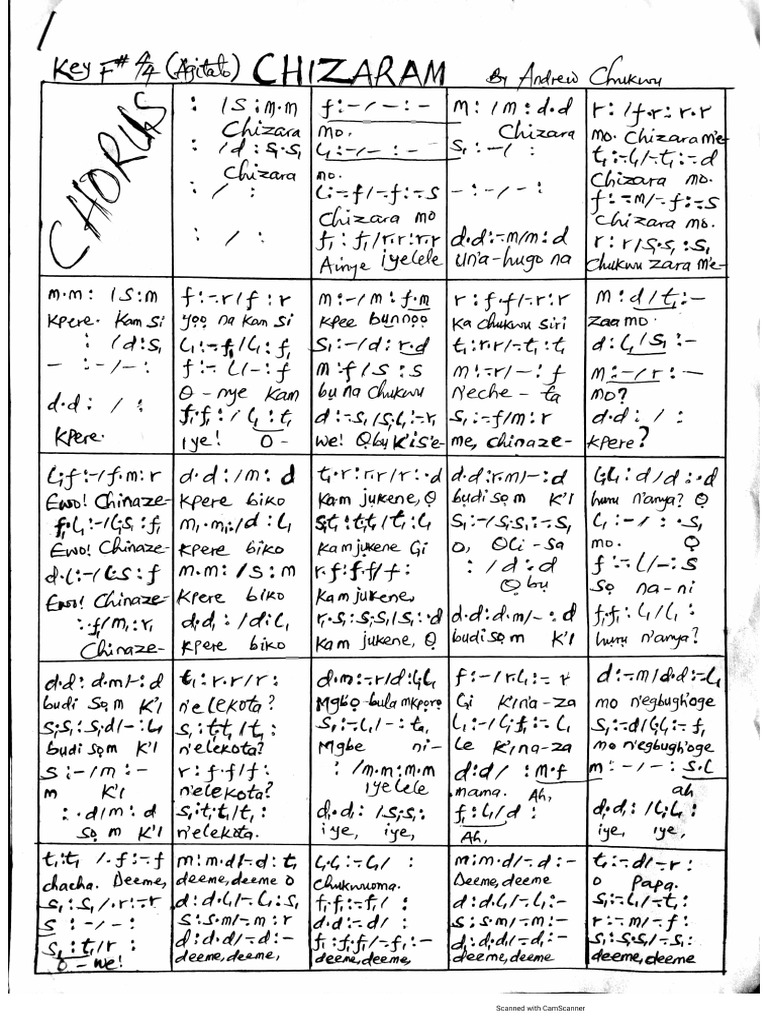 Key F# 4/4 (Agitato) CHIZARAM By Andrew Chukwu
CHORUS
: / s : m.m
Chizara
: / d : s₁.s₁
Chizara
: / :
: / :
f : - / - : -
mo.
l₁ : - / - : -
mo.
l : -.f / -.f : -.s
Chizara mo
f₁ : f₁ / r.r : r.r
Ainye iyelele
m : / m : d.d
Chizara
s₁ : - / :
- : - / - :
d.d : -.m / m : d
Un'a-hugo na
r : / f.r : r.r
mo. Chizara m'e-
t₁ : -.l₁ / -.t₁ : -.d
Chizara mo.
f : -.m / -.f : -.s
Chizara mo.
r : r / s₁.s₁ : s₁
Chukwu zara m'e-
m.m : / s : m
kpere. Kam si
: / d : s₁
- : - / - :
d.d : / :
kpere.
f : -.r / f : r
yoo na kam si
l₁ : -.f₁ / l₁ : f₁
f : - l / - : f
O - nye kam
f₁.f₁ : / l₁ : t₁
iye! O-
m : - / m : f.m
kpee bunoo
s₁ : - / d : r.d
m : f / s : s
bu na chukwu
d : -.s₁ / s₁.l₁ : -.r
we! Ọbụ K'is'e-
r : f.f / -.r : r
ka chukwu siri
t₁ : r.r / -.t₁ : t₁
m : -.r / - : f
n'eche - ta
s₁ : -.f / m : r
me, chinaze-
m : d / t₁ : -
zaa mo.
d : l₁ / s₁ : -
m : - / r : -
mo?
d.d : / :
kpere?
l₁.f : - / f.m : r
Ewo! Chinaze-
f₁.l₁ : - / l₁.s₁ : f₁
Ewo! Chinaze-
d.l : - / l.s : f
Ewo! Chinaze-
: .f₁ / m₁ : r₁
Chinaze-
d.d : / m : d
kpere biko
m₁.m₁ : / d : l₁
kpere biko
m.m : / s : m
kpere biko
d₁.d₁ : / d : l₁
kpere biko
t₁.r : r.r / r : .d
kam jukene, Ọ
s₁.t₁ : t₁.t₁ / t₁ : l₁
kam jukene Gi
r.f : f.f / f :
kam jukene,
r₁.s₁ : s₁.s₁ / s₁ : .d
kam jukene, Ọ
d.d : r.m / - : d
budi sọm K'I
s₁ : - / s₁.s₁ : -.s₁
O, Oli - sa
: / d : d
Ọbu
d.d : d.m / - : d
budi sọ m K'I
l₁.l₁ : d / d : .d
huru n'anya? Ọ
l₁ : - / : .s₁
mo. Ọ
f : -.l / - : s
Sọ na-ni
f₁.f₁ : l₁ / l₁ :
huru n'anya?
d.d : d.m / - : d
budi Sọm K'I
s₁.s₁ : s₁.d / - : l₁
budi sọm K'I
s : - / m : -
m K'I
: .d / m : d
sọ m K'I
t₁ : r.r / r :
n'elekota?
s₁ : t₁.t₁ / t₁ :
n'elekota?
r : f.f / f :
n'elekota?
s₁ : t₁.t₁ / t₁ :
n'elekota.
d.m : -.r / d : l₁.l₁
Mgbọ-bula mkporo
s₁ : -.l₁ / - : t₁
Mgbe ni-
: / m.m : m.m
iyelele
d₁.d₁ : / s₁.s₁ :
iye, iye,
f : - / r.l₁ : -.r
Gi K'ina-za
l₁ : - / l₁.f₁ : -.l₁
Le K'ina-za
d : d / : m.f
mama. Ah,
f₁ : l₁ / d :
Ah,
d : -.m / d.d : -.l₁
mo n'egbugh'oge
s₁ : -.d / l₁.l₁ : -.f₁
mo n'egbugh'oge
m : - / - : s.l
ah
d₁.d₁ : / l₁.l₁ :
iye, iye,
t₁.t₁ / .f : -.f
chacha. Deeme,
s₁.s₁ / .r : -.r
s : - / - :
s₁ : t₁ / r :
O - we!
m : m.d / -.d : t₁
deeme, deeme O
d : d.l₁ / -.l₁ : s₁
s : s.m / -.m : r
d : d.d / -.d : -
deeme, deeme,
l₁.l₁ : -.l₁ / :
Chukwuoma.
f₁.f₁ : -.f₁ / :
d.d : -.d / :
f₁ : f₁.f₁ / -.f₁ : -
deeme, deeme,
m : m.d / -.d : -
Deeme, deeme
d : d.l₁ / -.l₁ : -
s : s.m / -.m : -
d₁ : d.d / -.d₁ : -
deeme, deeme
t₁ : -.d / -.r :
O Papa.
s₁ : -.l₁ / -.t₁ :
r : -.m / -.f :
s₁ : s₁.s₁ / -.s₁ :
deeme, deeme
Scanned with CamScanner